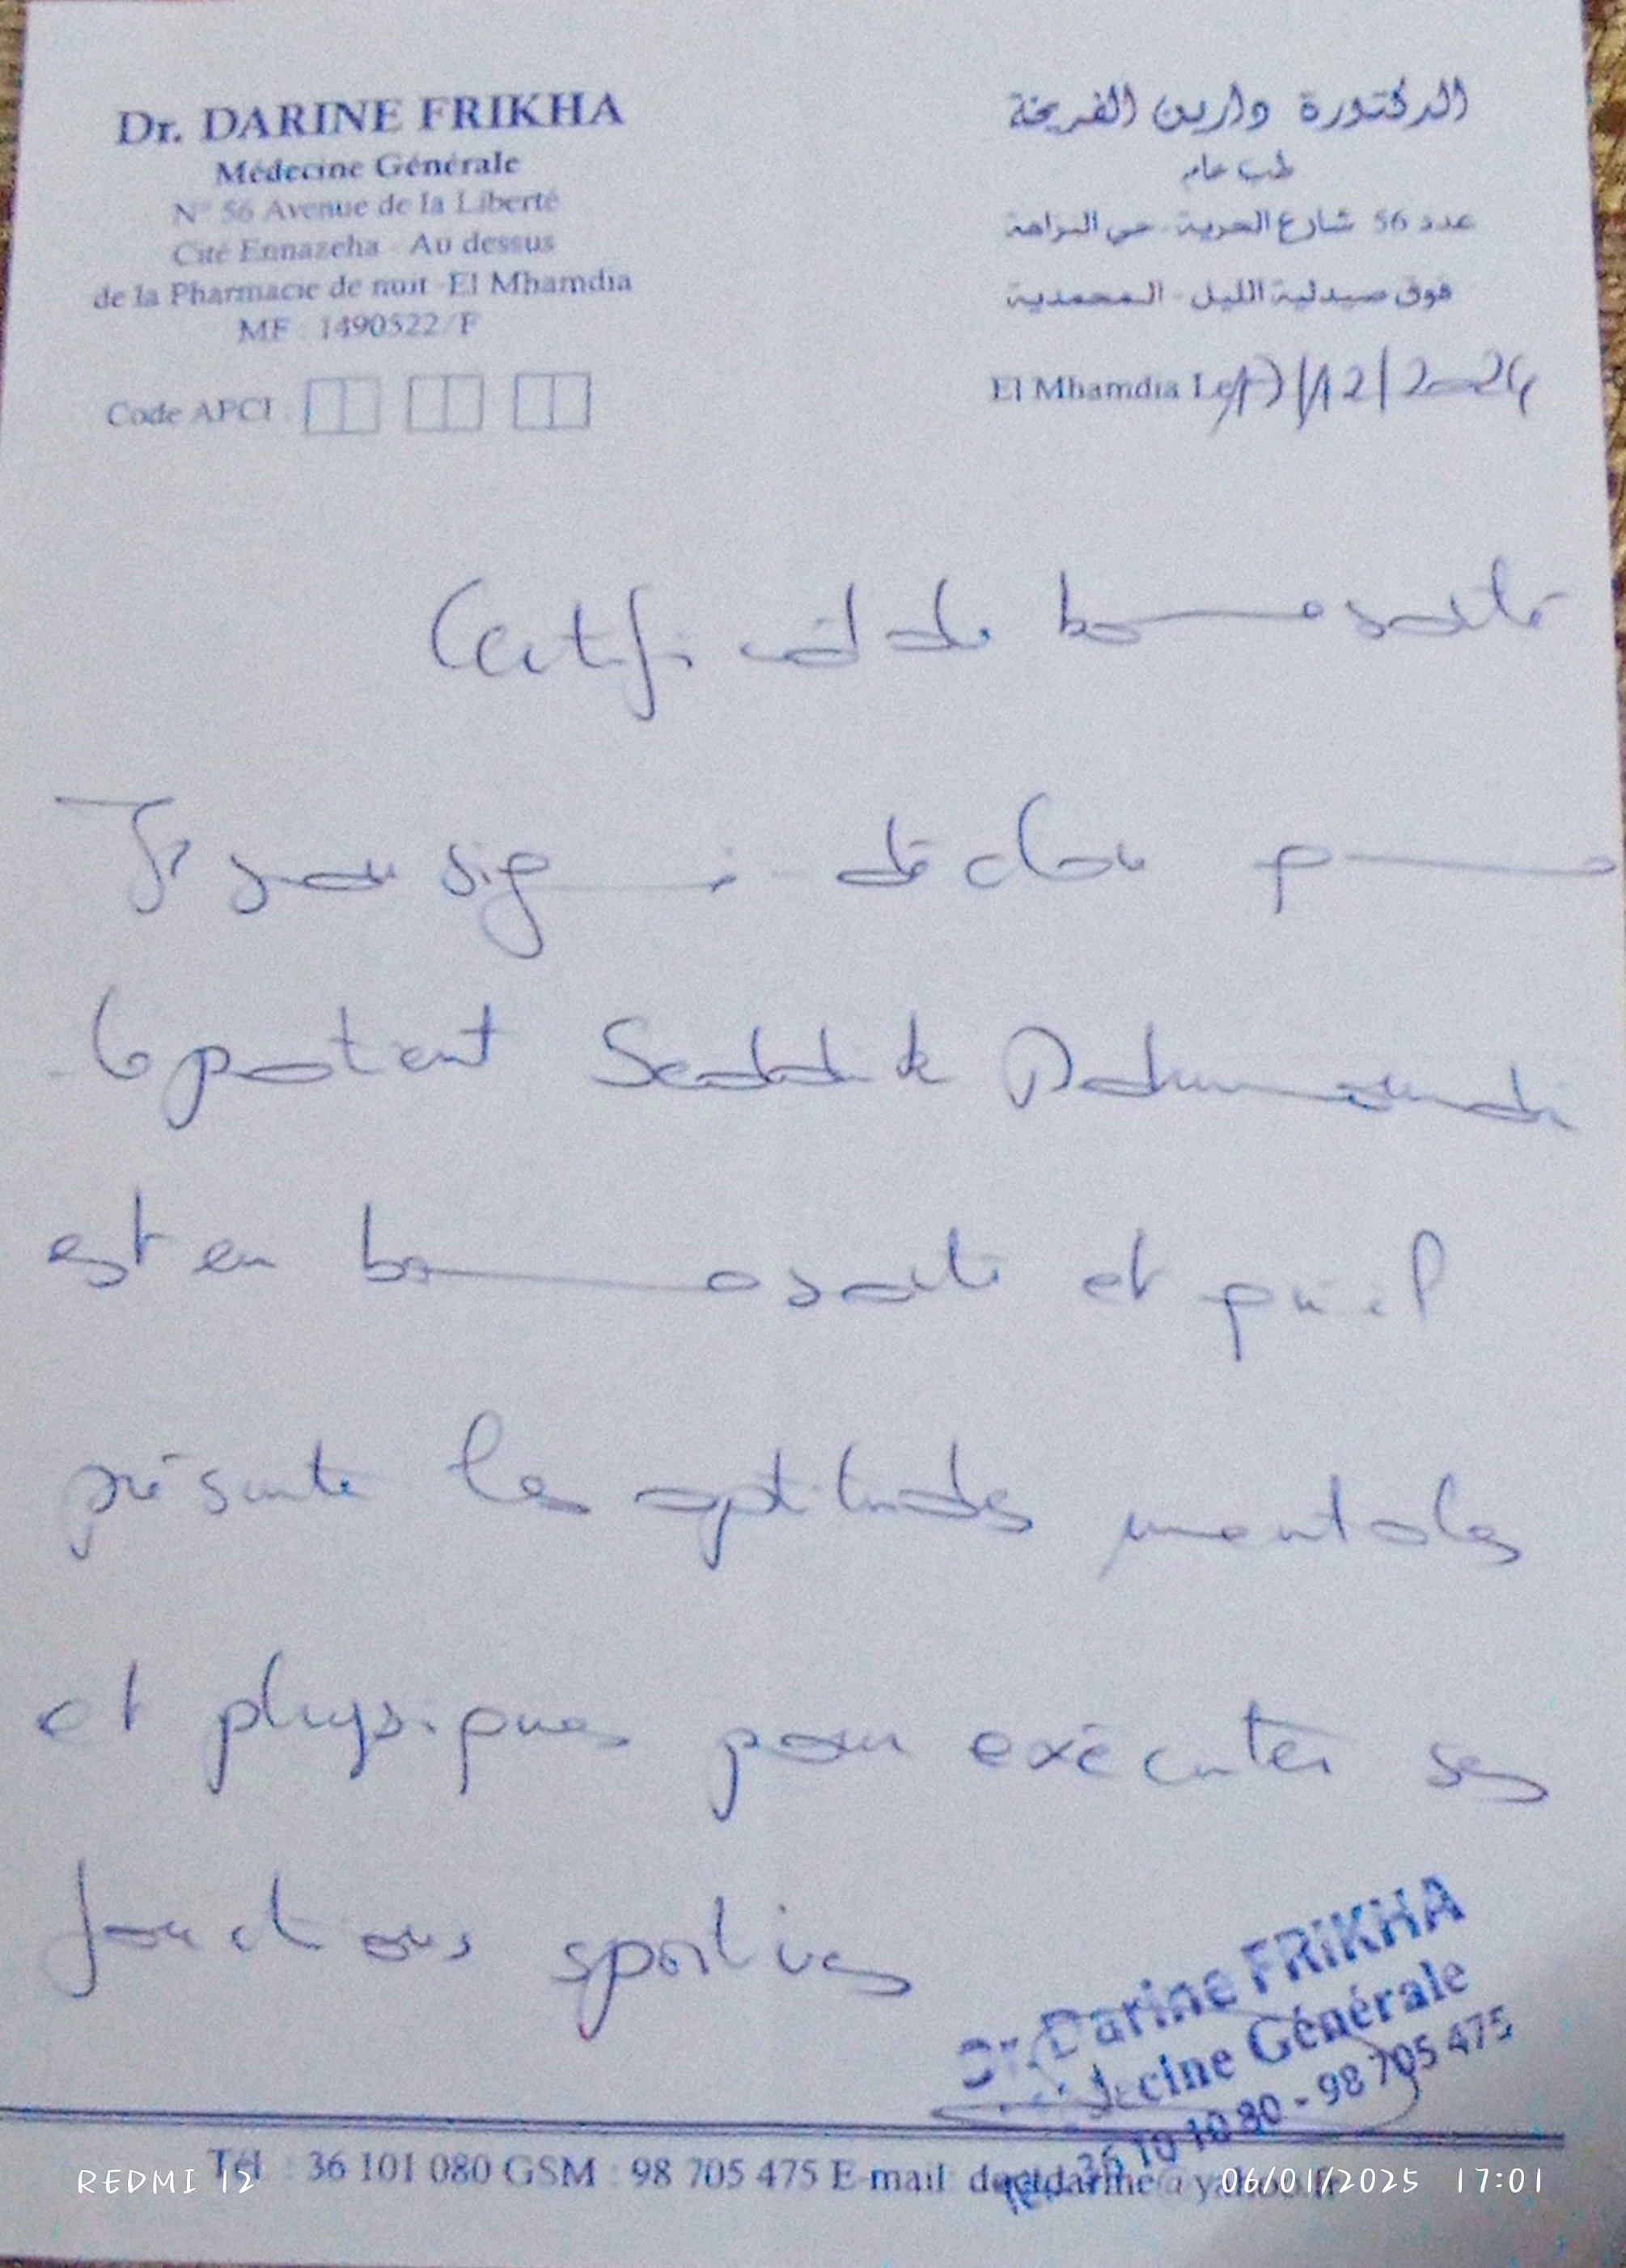 Dr. DARINE FRIKHA
Médecine Générale
N° 56 Avenue de la Liberté
Cité Ennazeha - Au dessus
de la Pharmacie de nuit -El Mhamdia
MF : 1490522/F
Code APCI :
الدكتورة دارين الفريخة
طب عام
عدد 56 شارع الحرية - حي النزاهة
فوق صيدلية الليل - المحمدية
El Mhamdia Le /12/2024
Certificat de bonne santé
Je sousigné déclare que
le patient Seddik
est en bonne santé et qu'il
présente les aptitudes mentales
et physiques pour exécuter ses
fonctions sportives
Dr. Darine FRIKHA
Médecine Générale
Tél : 36 10 10 80 - 98 705 475
Tél : 36 101 080 GSM : 98 705 475 E-mail: doctdarine@yahoo.fr
REDMI 12
06/01/2025 17:01